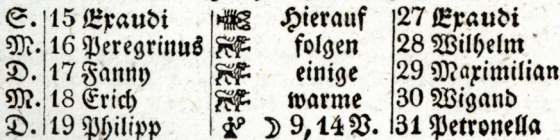 S. 15 Exaudi Hierauf 27 Exaudi
M. 16 Peregrinus folgen 28 Wilhelm
D. 17 Fanny einige 29 Maximilian
M. 18 Erich warme 30 Wigand
D. 19 Philipp ☽ 9, 14 V. 31 Petronella